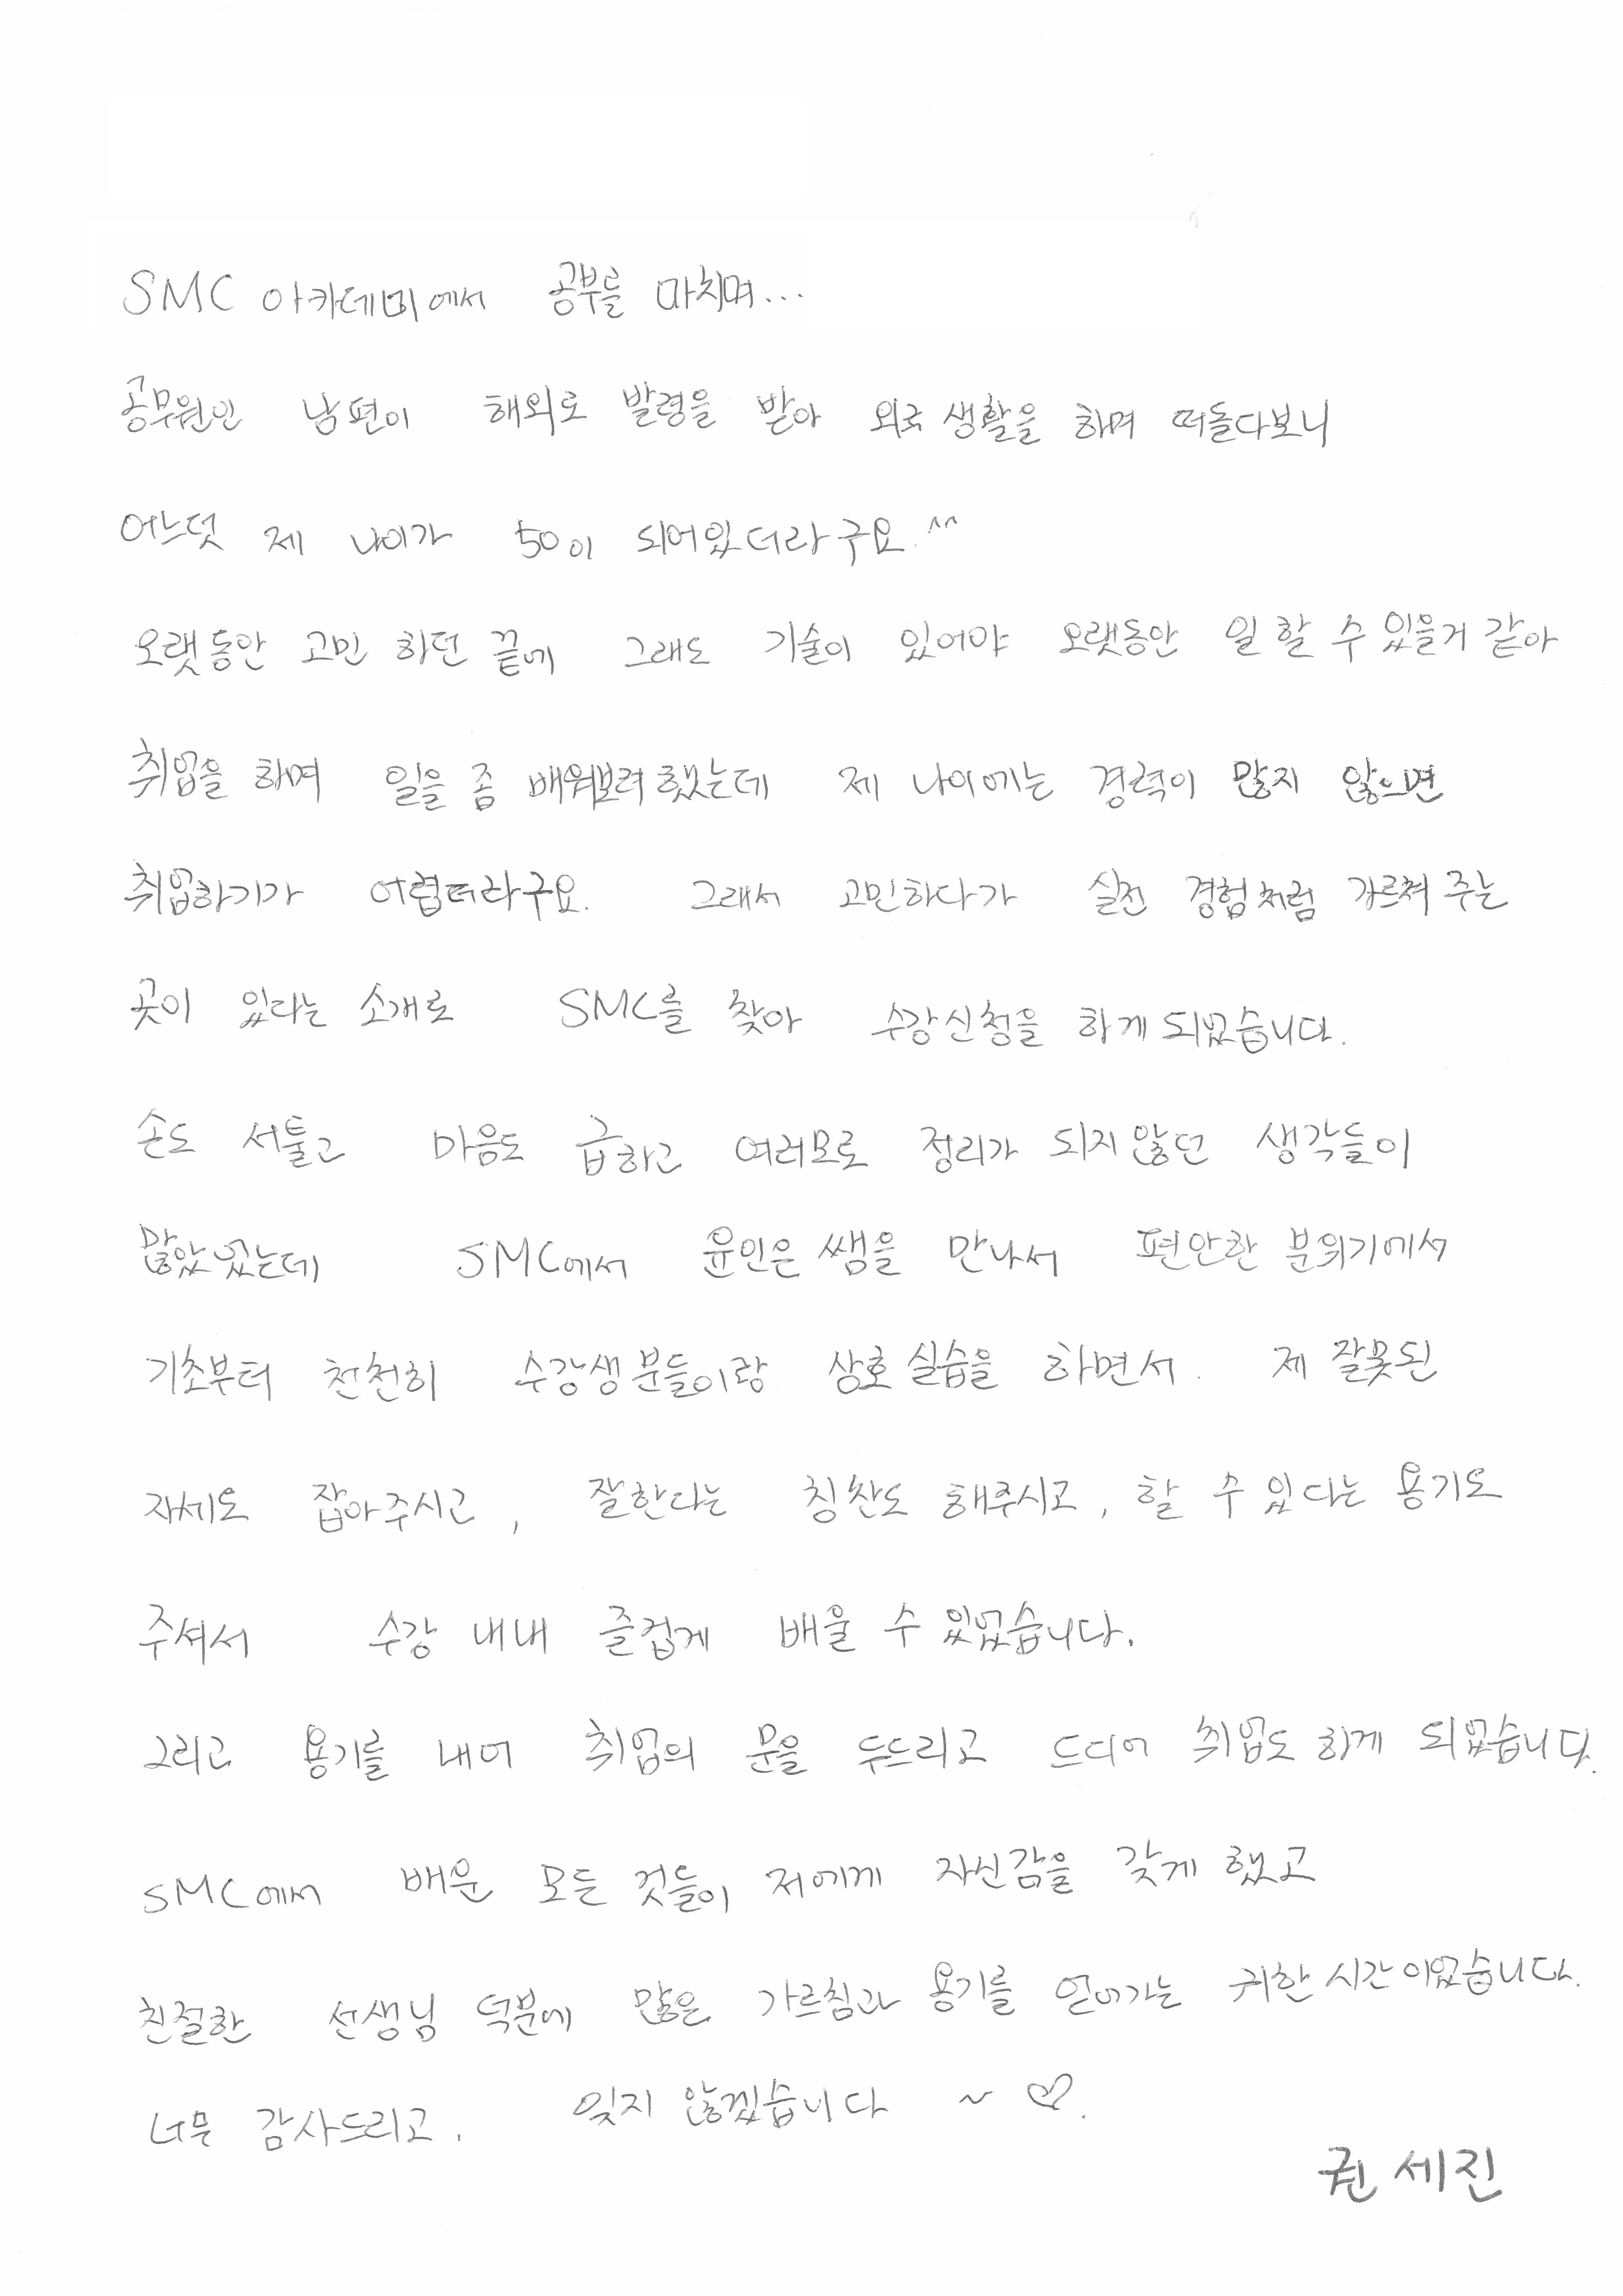 SMC 아카데미에서 공부를 마치며...
공무원인 남편이 해외로 발령을 받아 외국 생활을 하며 떠돌다보니
어느덧 제 나이가 50이 되어있더라구요.^^
오랫동안 고민 하던 끝에 그래도 기술이 있어야 오랫동안 일 할 수 있을거 같아
취업을 하며 일을 좀 배워보려 했는데 제 나이에는 경력이 많지 않으면
취업하기가 어렵더라구요. 그래서 고민하다가 실전 경험처럼 가르쳐 주는
곳이 있다는 소개로 SMC를 찾아 수강신청을 하게 되었습니다.
손도 서툴고 마음도 급하고 여러모로 정리가 되지 않던 생각들이
많았었는데 SMC에서 윤인은 쌤을 만나서 편안한 분위기에서
기초부터 천천히 수강생분들이랑 상호 실습을 하면서. 제 잘못된
자세도 잡아주시고, 잘한다는 칭찬도 해주시고, 할 수 있다는 용기도
주셔서 수강 내내 즐겁게 배울 수 있었습니다.
그리고 용기를 내어 취업의 문을 두드리고 드디어 취업도 하게 되었습니다.
SMC에서 배운 모든 것들이 저에게 자신감을 갖게 했고
친절한 선생님 덕분에 많은 가르침과 용기를 얻어가는 귀한 시간이었습니다.
너무 감사드리고. 잊지 않겠습니다 ~ ♡.
권세진